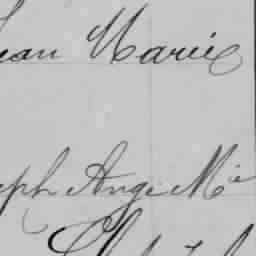 ean Marie
eph Ange Mie